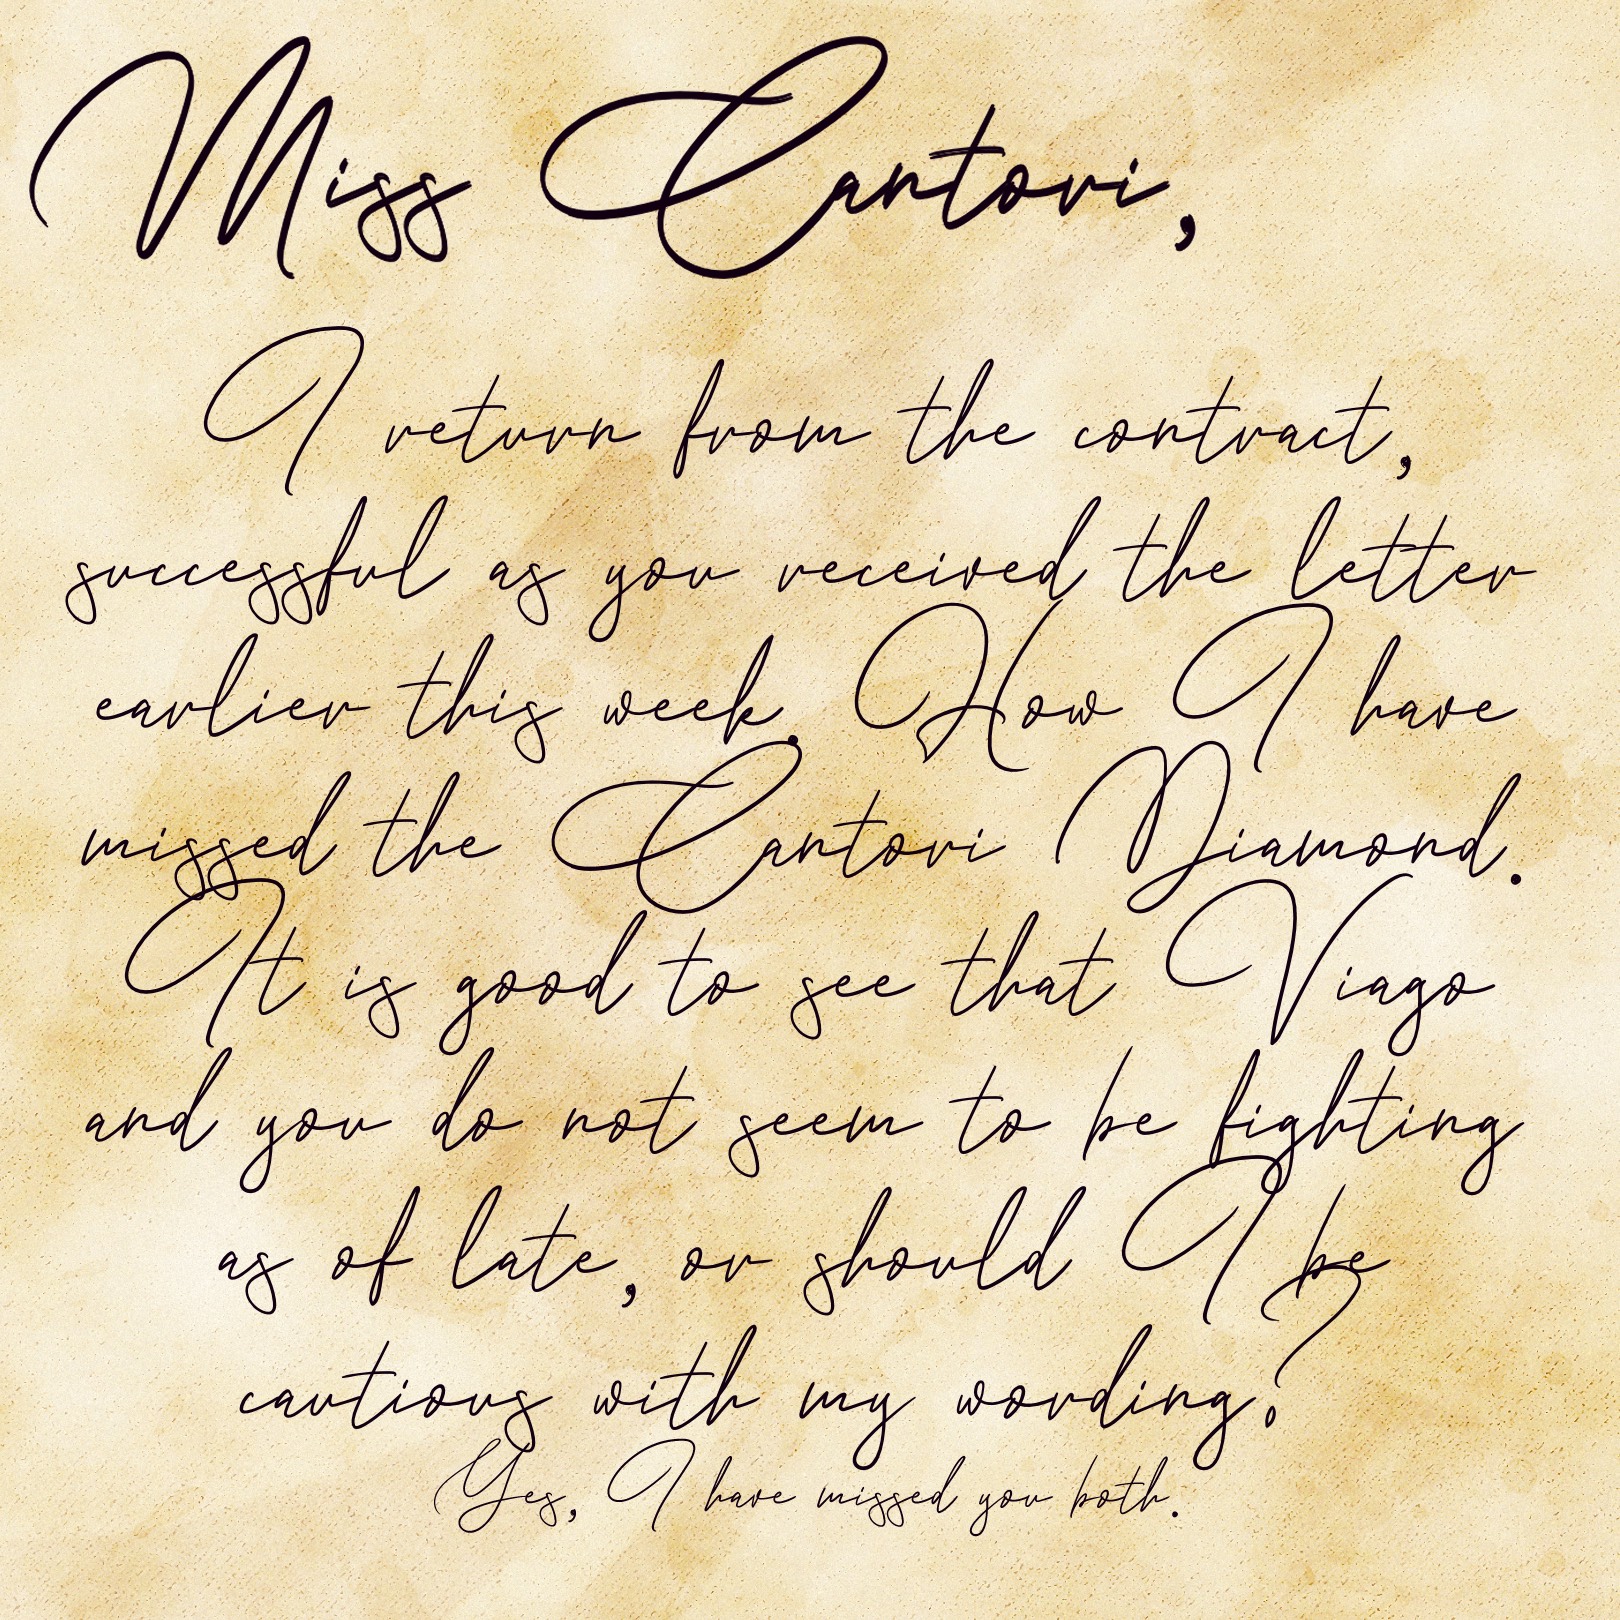 Miss Cantori,
I return from the contract,
successful as you received the letter
earlier this week. How I have
missed the Cantori Diamond.
It is good to see that Viago
and you do not seem to be fighting
as of late, or should I be
cautious with my wording?
Yes, I have missed you both.